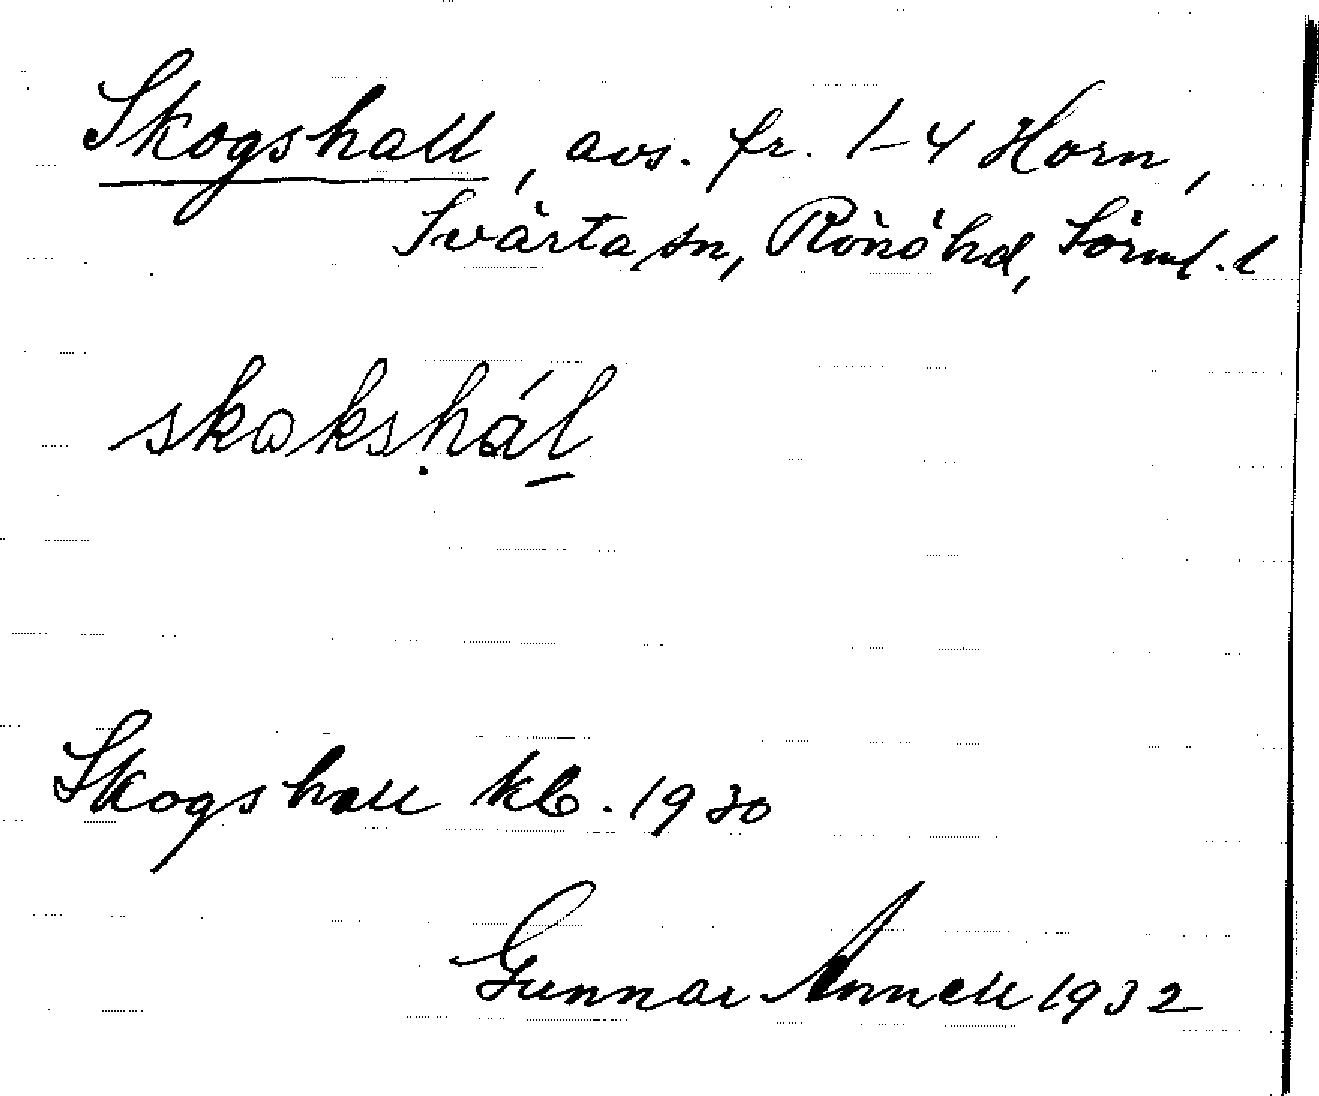 Skogshall, avs. fr. 1-4 Horn,
Svärta sn, Rönö hd, Sörml. l
skokshál
Skogshall kb. 1930
Gunnar Annell 1932